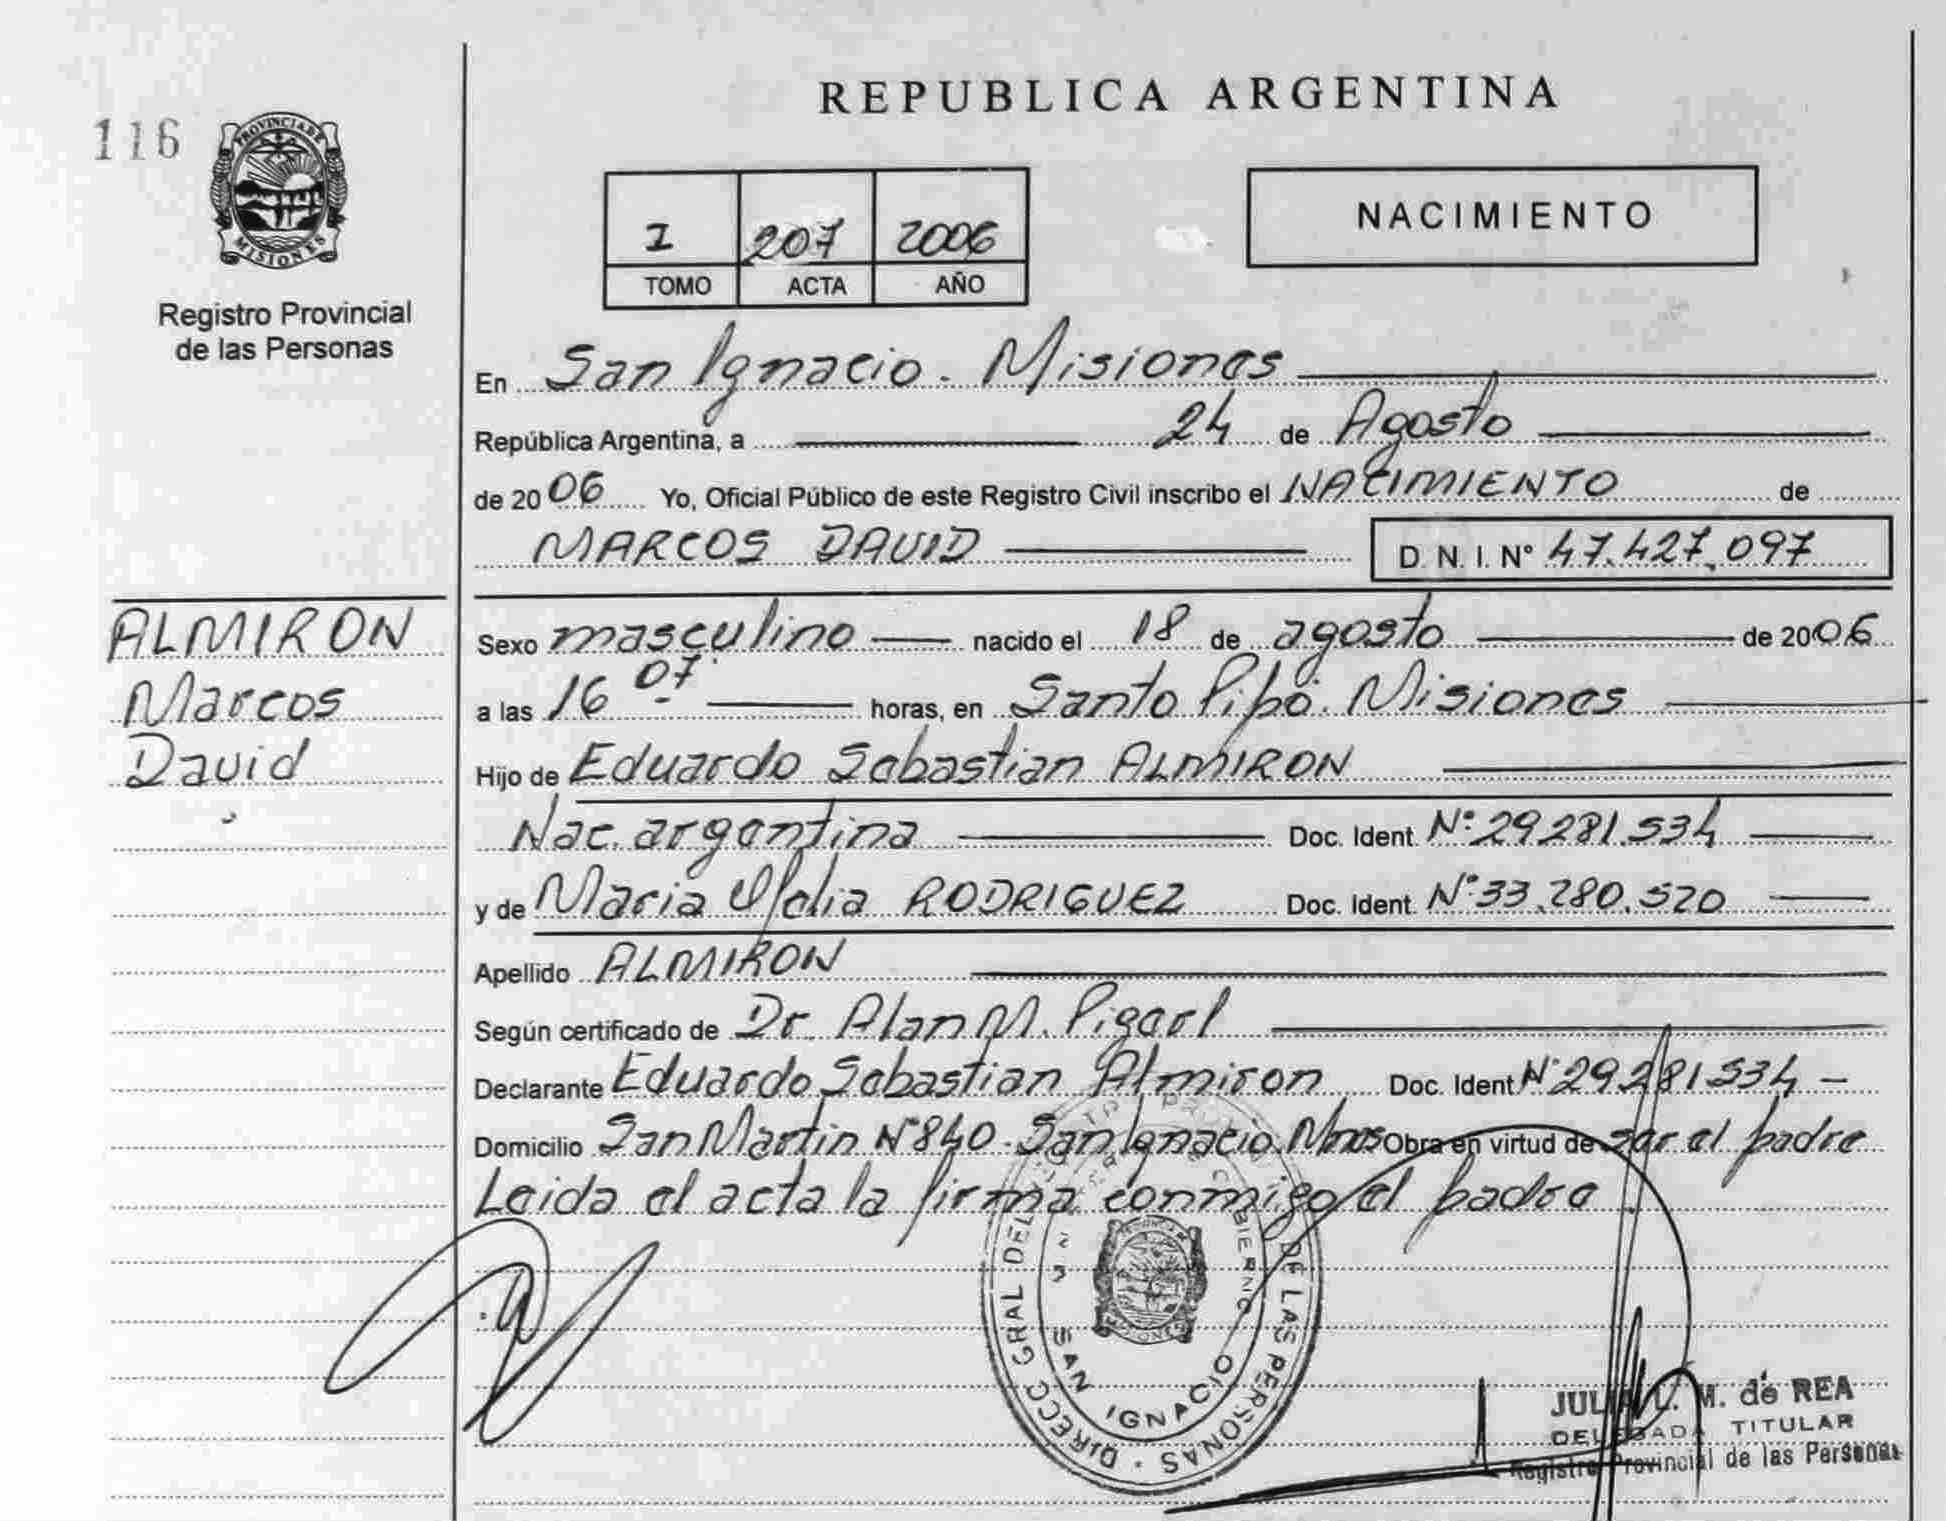 REPUBLICA ARGENTINA
116
PROVINCIA DE
MISIONES
Registro Provincial
de las Personas
I 207 2006
TOMO ACTA AÑO
NACIMIENTO
En San Ignacio. Misiones
República Argentina, a 24 de Agosto
de 2006 Yo, Oficial Público de este Registro Civil inscribo el NACIMIENTO de
MARCOS DAVID D. N. I. N° 47.427.097
ALMIRON
Marcos
David
Sexo masculino nacido el 18 de agosto de 2006
a las 16 07 horas, en Santo Pipó. Misiones
Hijo de Eduardo Sebastian ALMIRON
Nac. argentina Doc. Ident. N°29281.534
y de Maria Ofelia RODRIGUEZ Doc. Ident. N°33.280.520
Apellido ALMIRON
Según certificado de Dr. Alan M.
Declarante Eduardo Sebastian Almiron Doc. Ident N°29281534
Domicilio San Martin N°840. San Ignacio. Mnes Obra en virtud de ser el padre
Leida el acta la firma conmigo el padre
DIRECC GRAL DEL DE LAS PERSONAS
SAN IGNACIO
L. M. de REA
DELEGADA TITULAR
Registro Provincial de las Personas